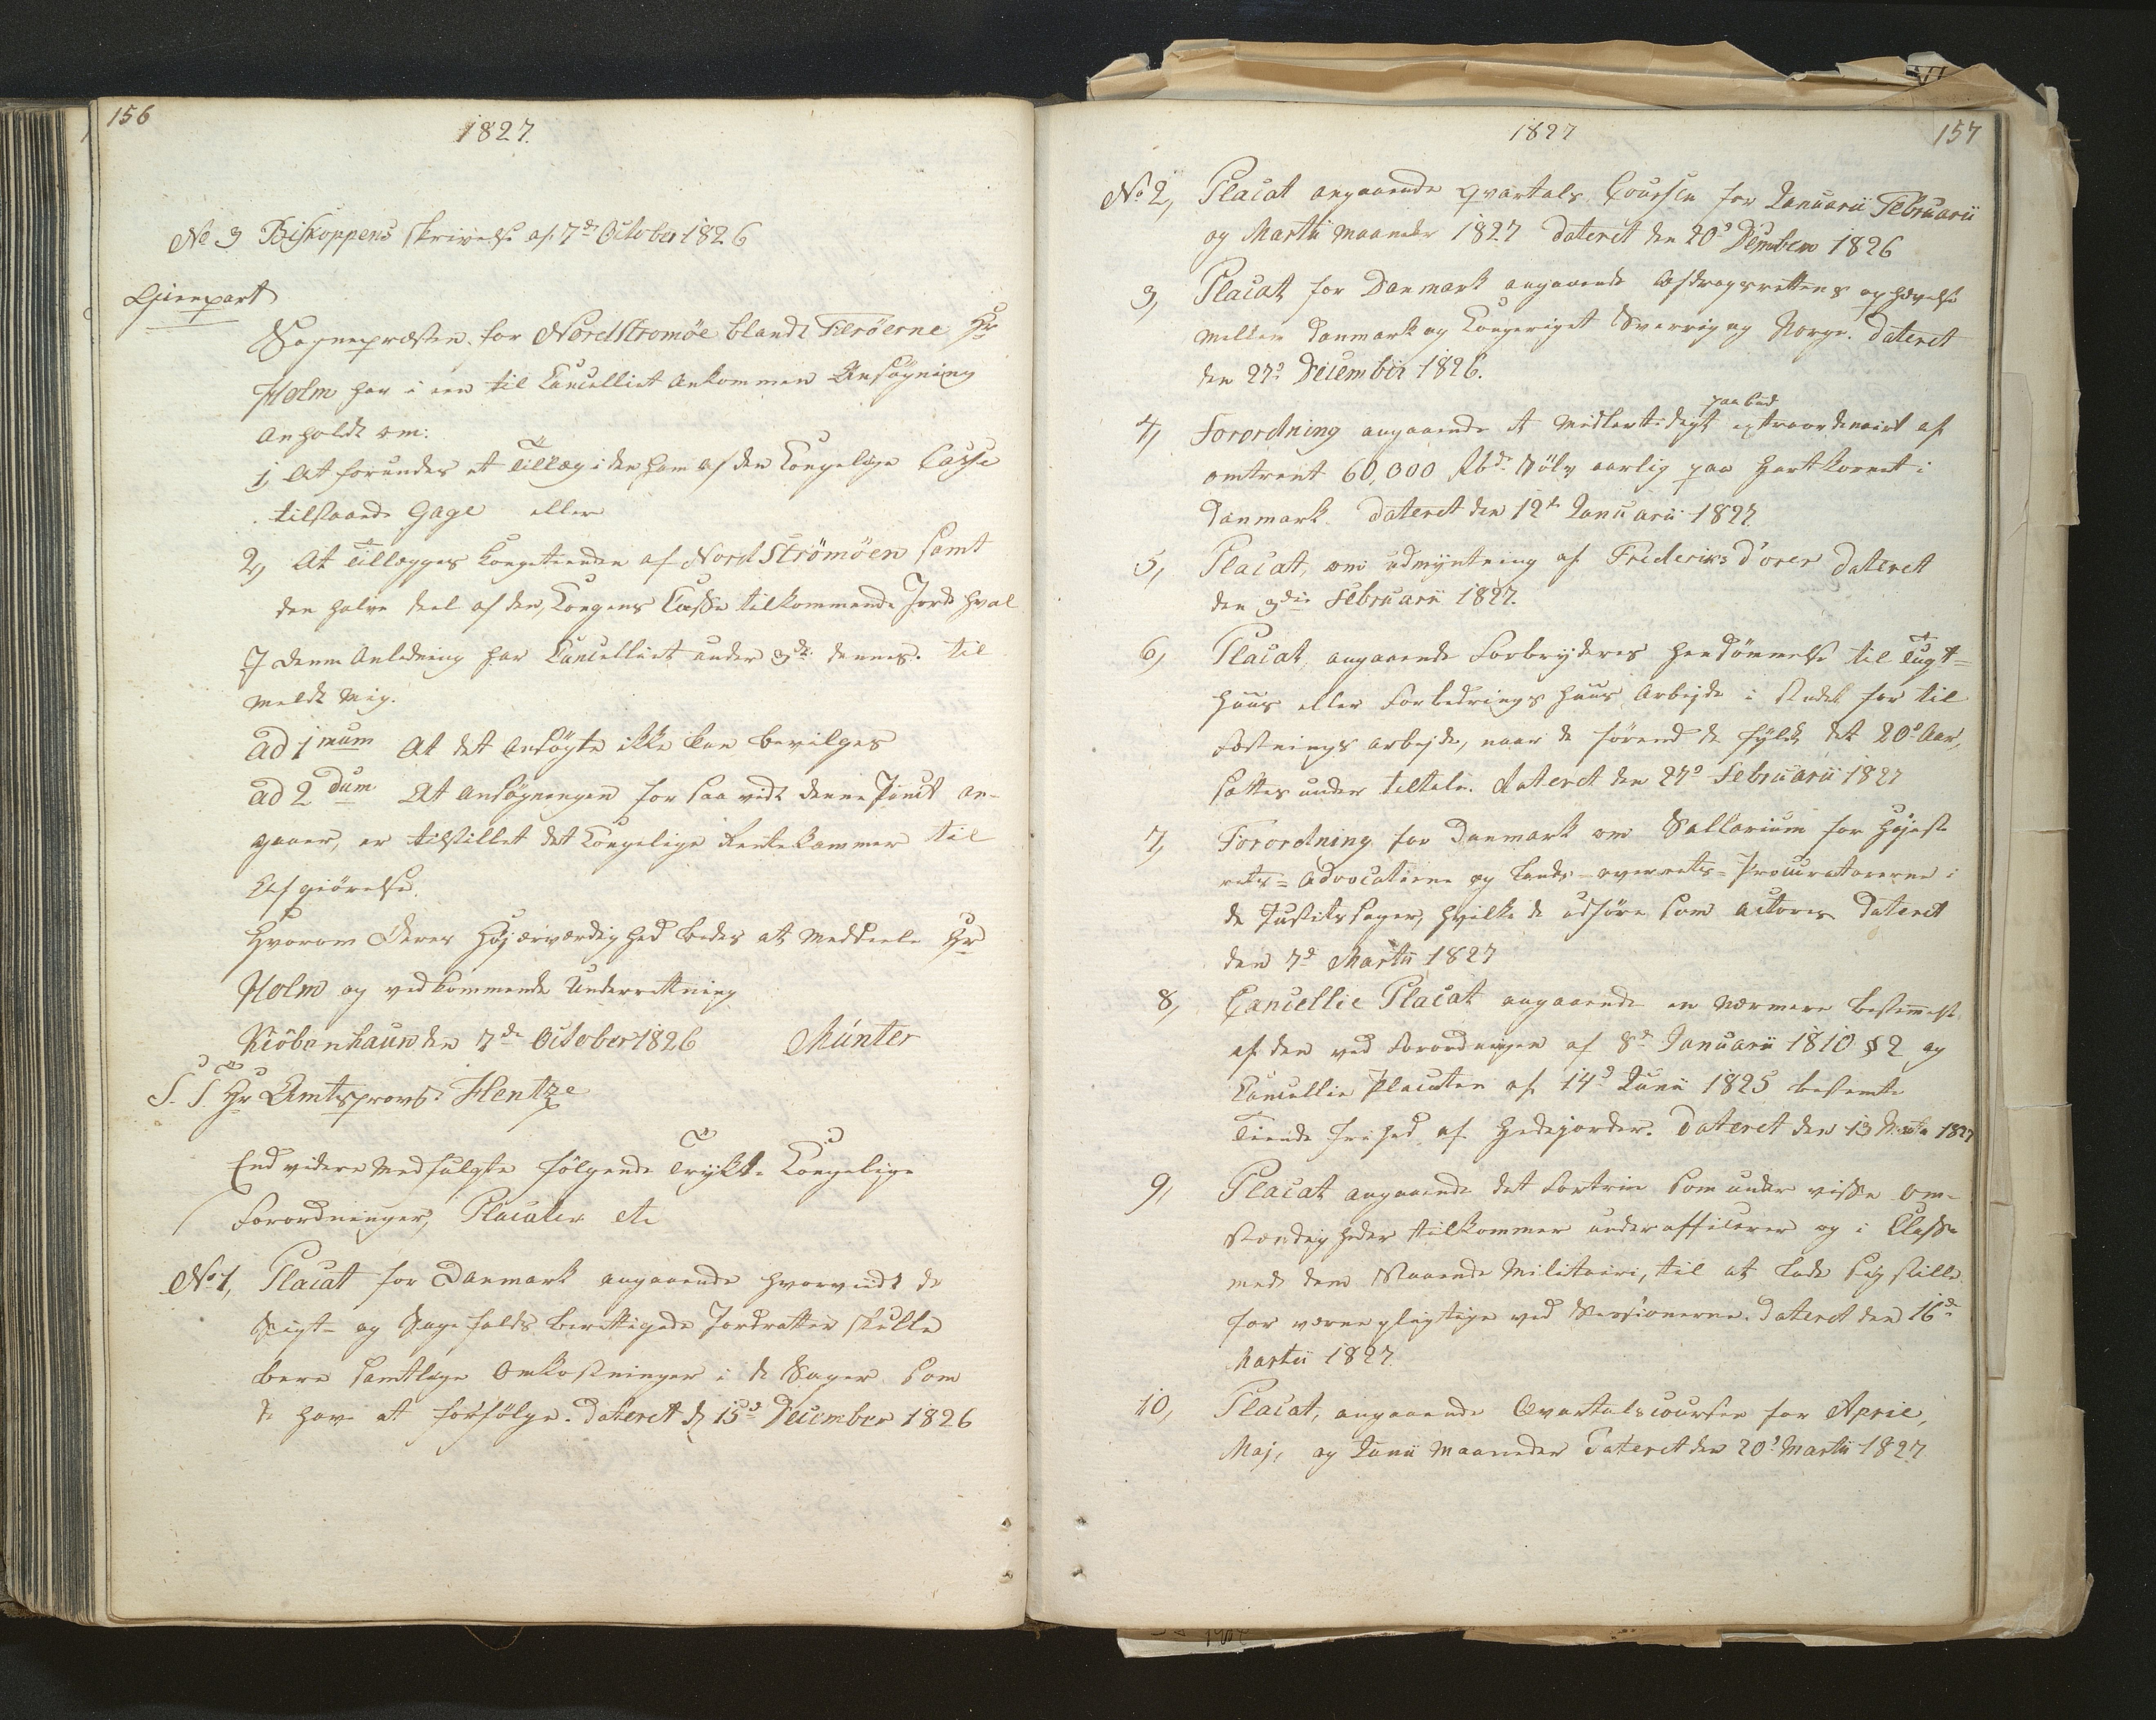 156
1827.
No 3 Biskoppens skrivelse af 7de October 1826
Gienpart
Sognepræsten for Nordstromøe blandt Færöerne Hr
Holm har i een til Cancelliet ankommen Ansøgning
anholdt om:
1, At forundes et Tillæg i den ham af den Kongelige Casse
tilstaaede Gage eller
2, At tillægges Kongetienden af Nord Strömöen samt
den halve deel af den, Kongens Casse tilkommende Jordhval
I denne Anledning har Cancelliet under 3de dennes. til
meldt mig.
ad 1mum At det ansøgte ikke kan bevilges
ad 2dum At Ansøgningen for saa vidt denne Punct an-
gaaer, er tilstillet det Kongelige Rentekammer til
Afgiørelse.
Hvorom Deres Høiærværdighed bedes at meddeele Hr
Holm og vedkommende Underretning
Kiöbenhaun den 7de October 1826 Münter
S. T. Hr Amtsprovst Hentze
End videre medfulgte følgende trykte Kongelige
Forordninger, Placater etc
No 1, Placat for Danmark angaaende hvorvidt de
Sigt- og Sagefalds berettigede Jordrotter skulle
bære samtlige Omkostninger i de Sager som
de have at forfølge. dateret d 15de December 1826
1827
157
No 2, Placat angaaende Qvartals Coursen for Januarii Februarii
og Martii maaneder 1827 dateret den 20de Dcember 1826
3, Placat for Danmark angaaende Afdragsrettens ophævelse
mellem Danmark og Kongeriget Sverrig og Norge. dateret
den 27de December 1826.
4, Forordning angaaende et midlertidigt extraordinairt paabud af
omtrent 60,000 Rbd. Sölv aarlig paa Hartkornet i
Danmark. dateret den 12te Januarii 1827
5, Placat, om udmyntning af Frideriks d'orer dateret
den 3die Februarii 1827.
6, Placat, angaaende Forbryderes hendömmelse til Tugt-
huus eller Forbedringshuus Arbejde i stedet for til
Fæstnings arbejde, naar de førend de fyldt det 20de Aar,
sættes under tiltale. dateret den 27de Februarii 1827
7, Forordning for Danmark om Sallarium for Høieste
rets-Advocaterne og Lands-overrets-Procuratorerne i
de Justitssager, hvilke de udføre som actores dateret
den 7de Martii 1827
8, Cancellie Placat angaaende en nærmere bestemmelse
af den ved Forordningen af 8de Januarii 1810 § 2 og
Cancellie Placaten af 14de Junii 1825 bestemte
Tiende frihed af Hedejorder. Dateret den 13 Martii 1827
9, Placat angaaende det Fortrin som under visse Om-
stændigheder tilkommer underofficerer og i Classe
med dem staaende Militaire, til at lade sig stille
for værnepligtige ved Sessionerne. Dateret den 16de
Martii 1827.
10, Placat, angaaende Qvartalscoursen for April,
Maj, og Junii maaneder Dateret den 20de Martii 1827